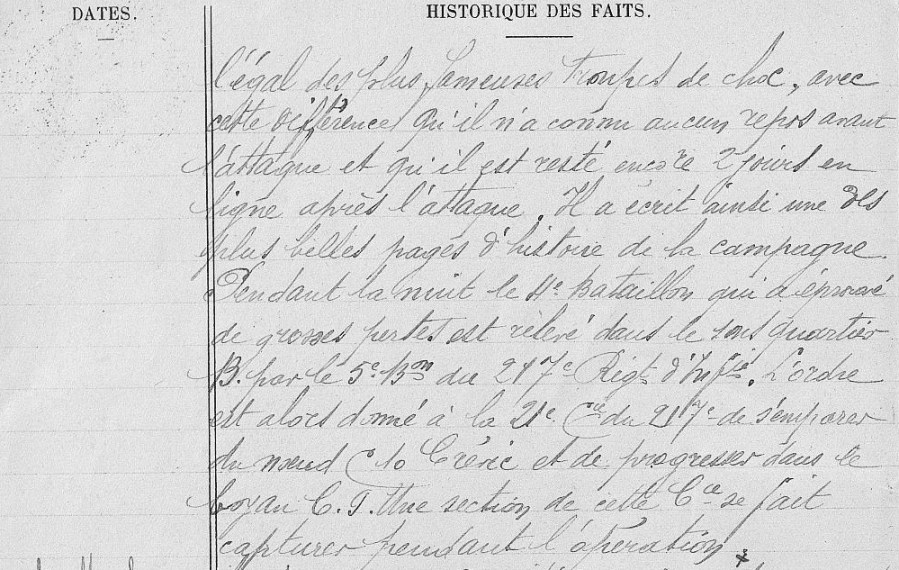 DATES.
HISTORIQUE DES FAITS.
l'égal des plus fameuses troupes de choc, avec
cette différence qu'il n'a connu aucun repos avant
l'attaque et qu'il est resté encore 2 jours en
ligne après l'attaque. Il a écrit ainsi une des
plus belles pages d'histoire de la campagne.
Pendant la nuit le 4e Bataillon qui a éprouvé
de grosses pertes est relevé dans le sous quartier
B. par le 5e Bon du 217e Régt d'Infie. L'ordre
est alors donné à la 21e Cie du 217e de s'emparer
du nœud C 10 et de progresser dans le
boyau C. T. Une section de cette Cie se fait
capturer pendant l'opération